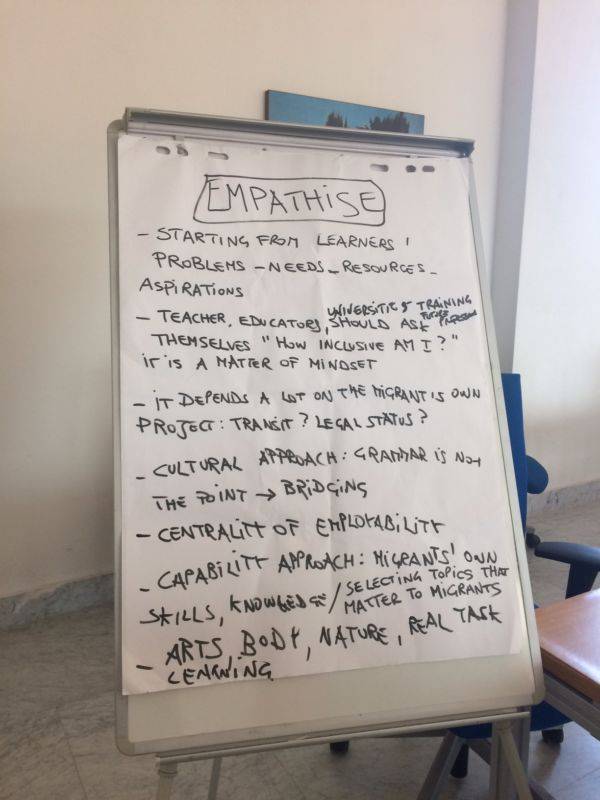 EMPATHISE
- STARTING FROM LEARNERS'
PROBLEMS - NEEDS - RESOURCES -
ASPIRATIONS
UNIVERSITIES TRAINING
FUTURE
- TEACHER, EDUCATORS, SHOULD ASK
THEMSELVES "HOW INCLUSIVE AM I?"
IT IS A MATTER OF MINDSET
- IT DEPENDS A LOT ON THE MIGRANT'S OWN
PROJECT: TRANSIT? LEGAL STATUS?
- CULTURAL APPROACH: GRAMMAR IS NOT
THE POINT → BRIDGING
- CENTRALITY OF EMPLOYABILITY
- CAPABILITY APPROACH: MIGRANTS' OWN
SKILLS, KNOWLEDGE / SELECTING TOPICS THAT
MATTER TO MIGRANTS
- ARTS, BODY, NATURE, REAL TASK
LEARNING